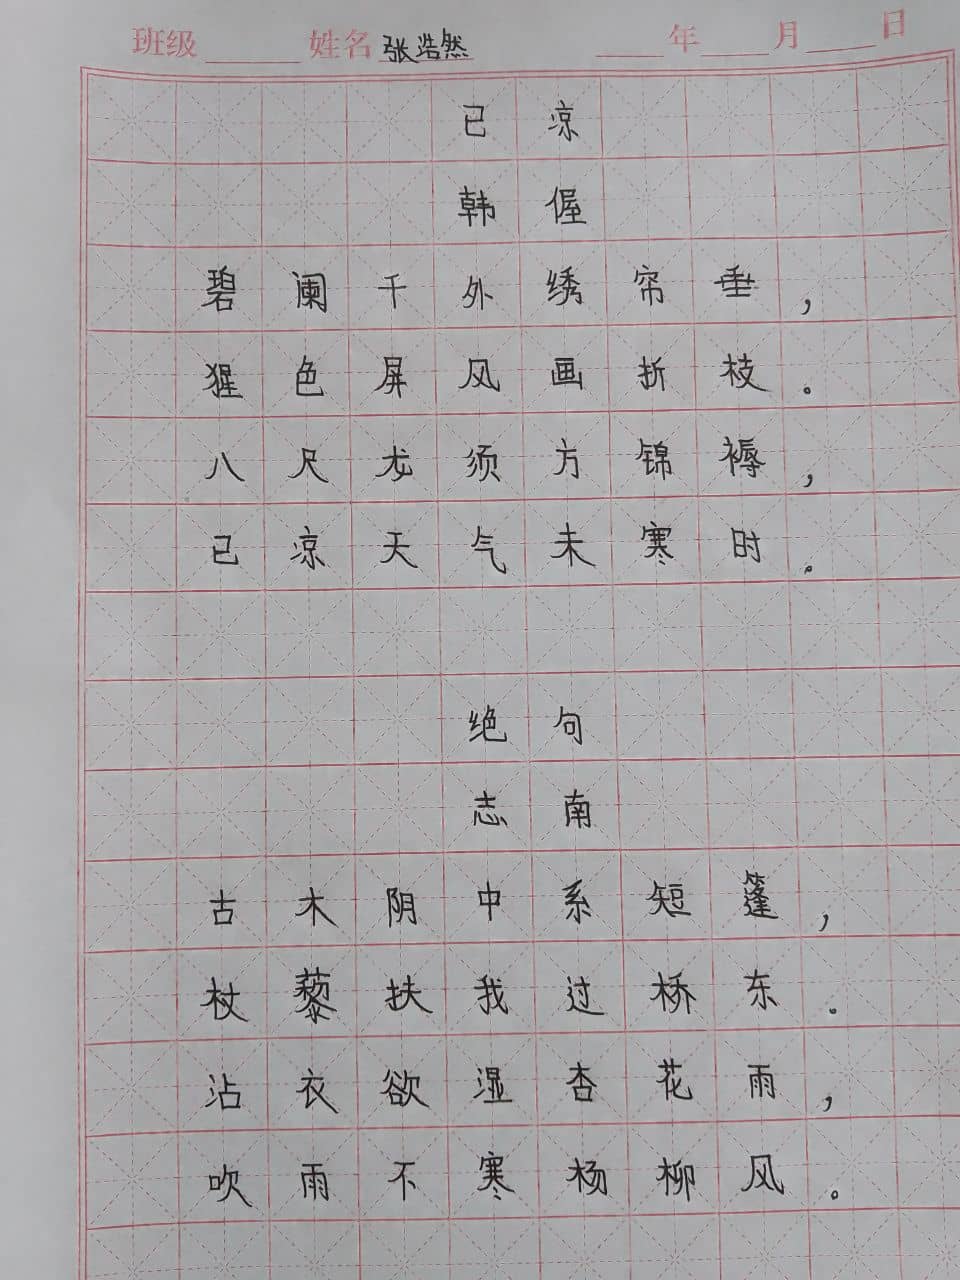 班级 姓名 张浩然 年 月 日
已凉
韩偓
碧阑千外绣帘垂，
猩色屏风画折枝。
八尺龙须方锦褥，
已凉天气未寒时。
绝句
志南
古木阴中系短篷，
杖藜扶我过桥东。
沾衣欲湿杏花雨，
吹雨不寒杨柳风。